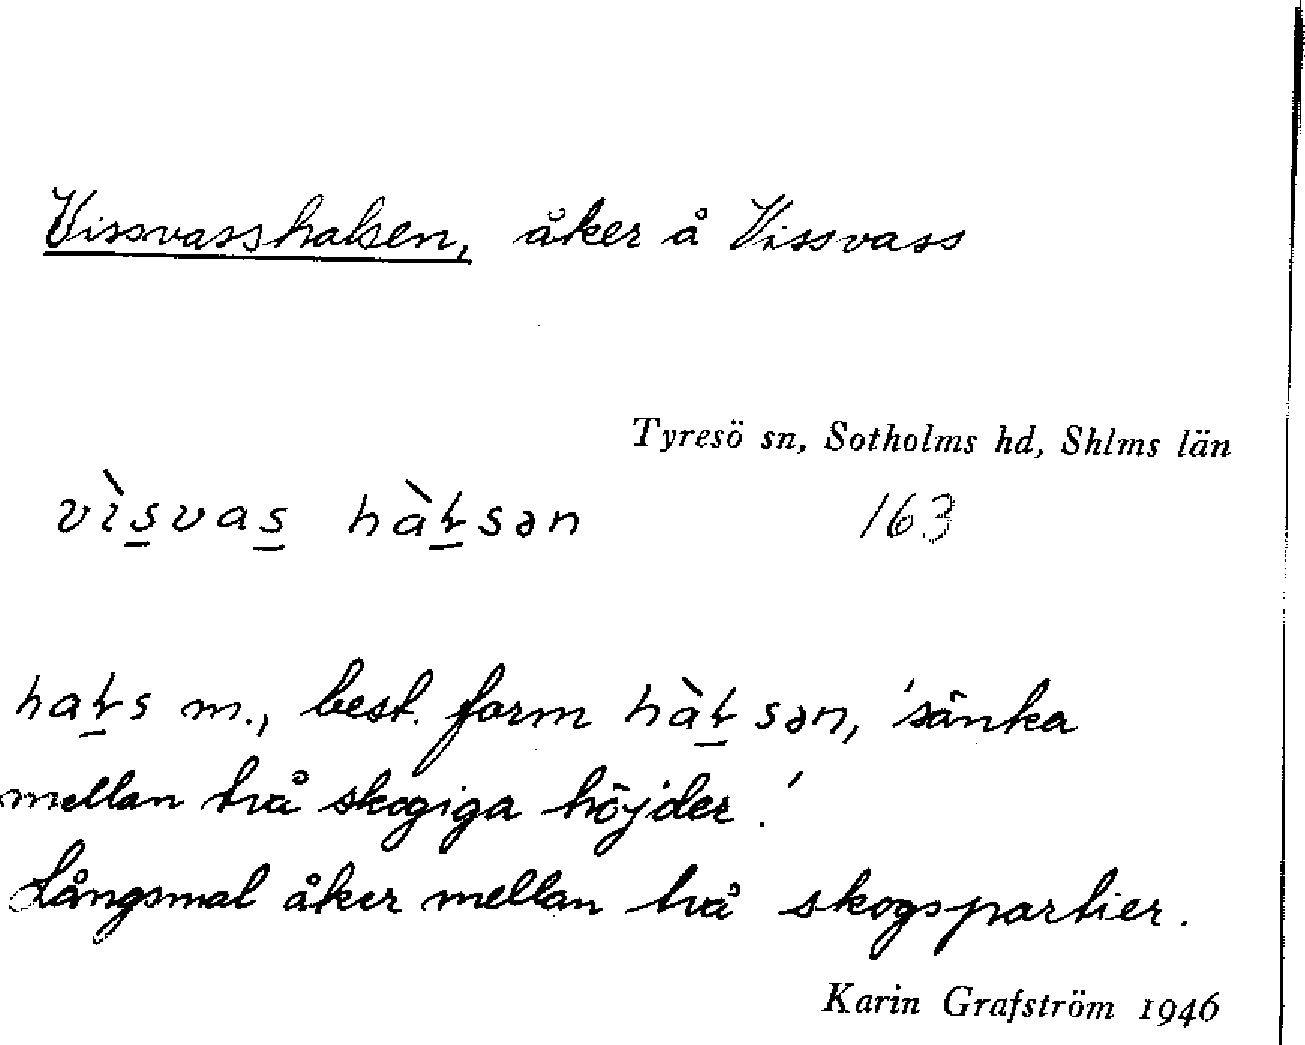 Vissvasshalsen, åker å Vissvass
Tyresö sn, Sotholms hd, Shlms län
vìs̲vas̲ hàɫ̲sən 163
haɫ̲s m., best. form hàɫ̲sən, 'sänka
mellan två skogiga höjder.'
Långsmal åker mellan två skogspartier.
Karin Grafström 1946